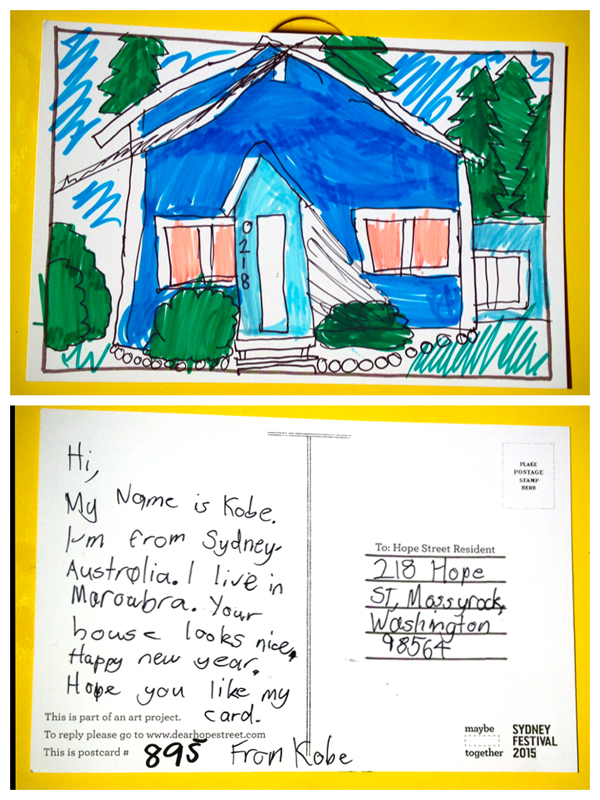 0
2
1
8
Hi,
My Name is Kobe.
I'm from Sydney
Australia. I live in
Maroubra. Your
house looks nice.
Happy new year.
Hope you like my
card.
This is part of an art project.
To reply please go to www.dearhopestreet.com
This is postcard # 895 From Kobe
PLACE
POSTAGE
STAMP
HERE
To: Hope Street Resident
218 Hope
ST, Mossyrock,
Washington
98564
maybe
together
SYDNEY
FESTIVAL
2015